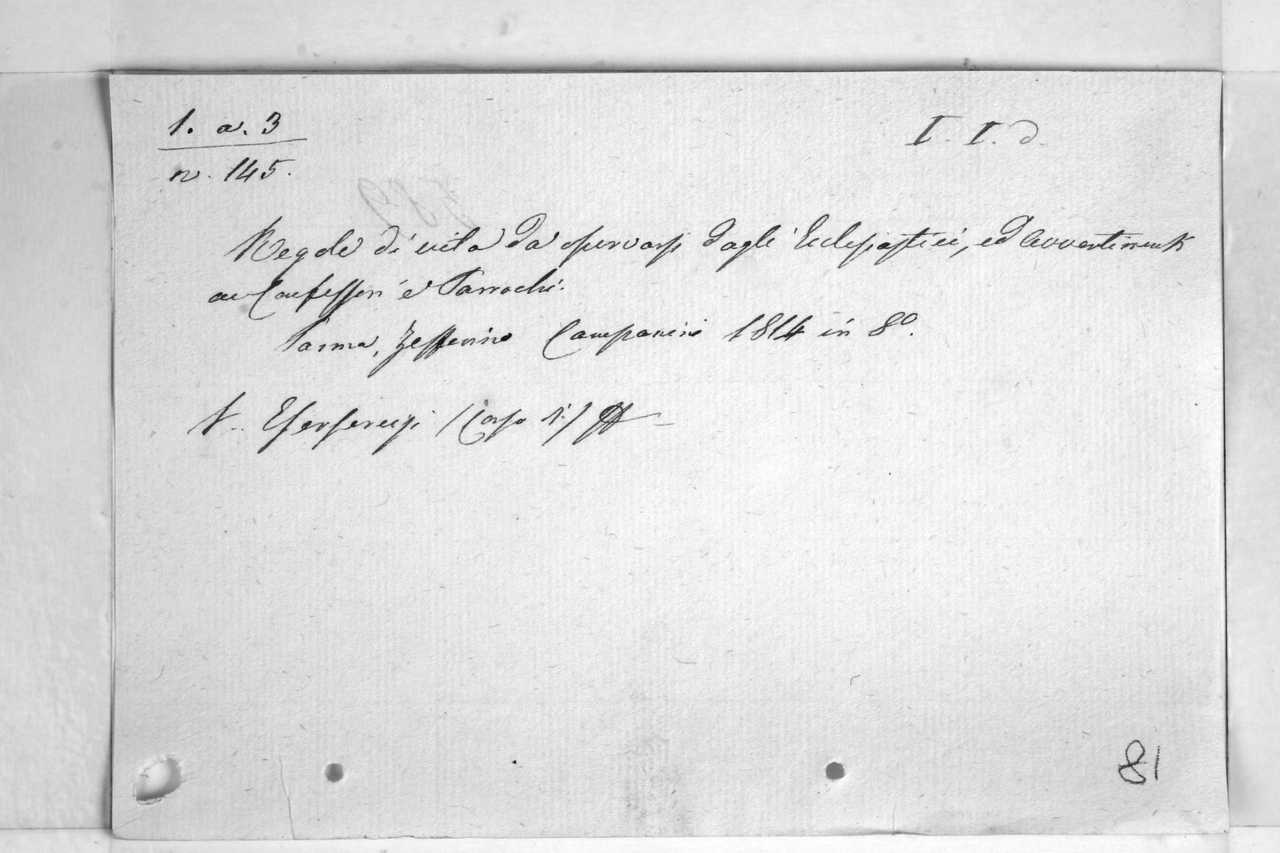 1. a. 3
n. 145.
I. I. d.
Regole di vita da osservarsi dagli Ecclesiastici, ed Avvertimenti
ai Confessori e Parrochi.
Parma, Zefferino Campanini 1814 in 8º.
V. (Caso 1.)
81